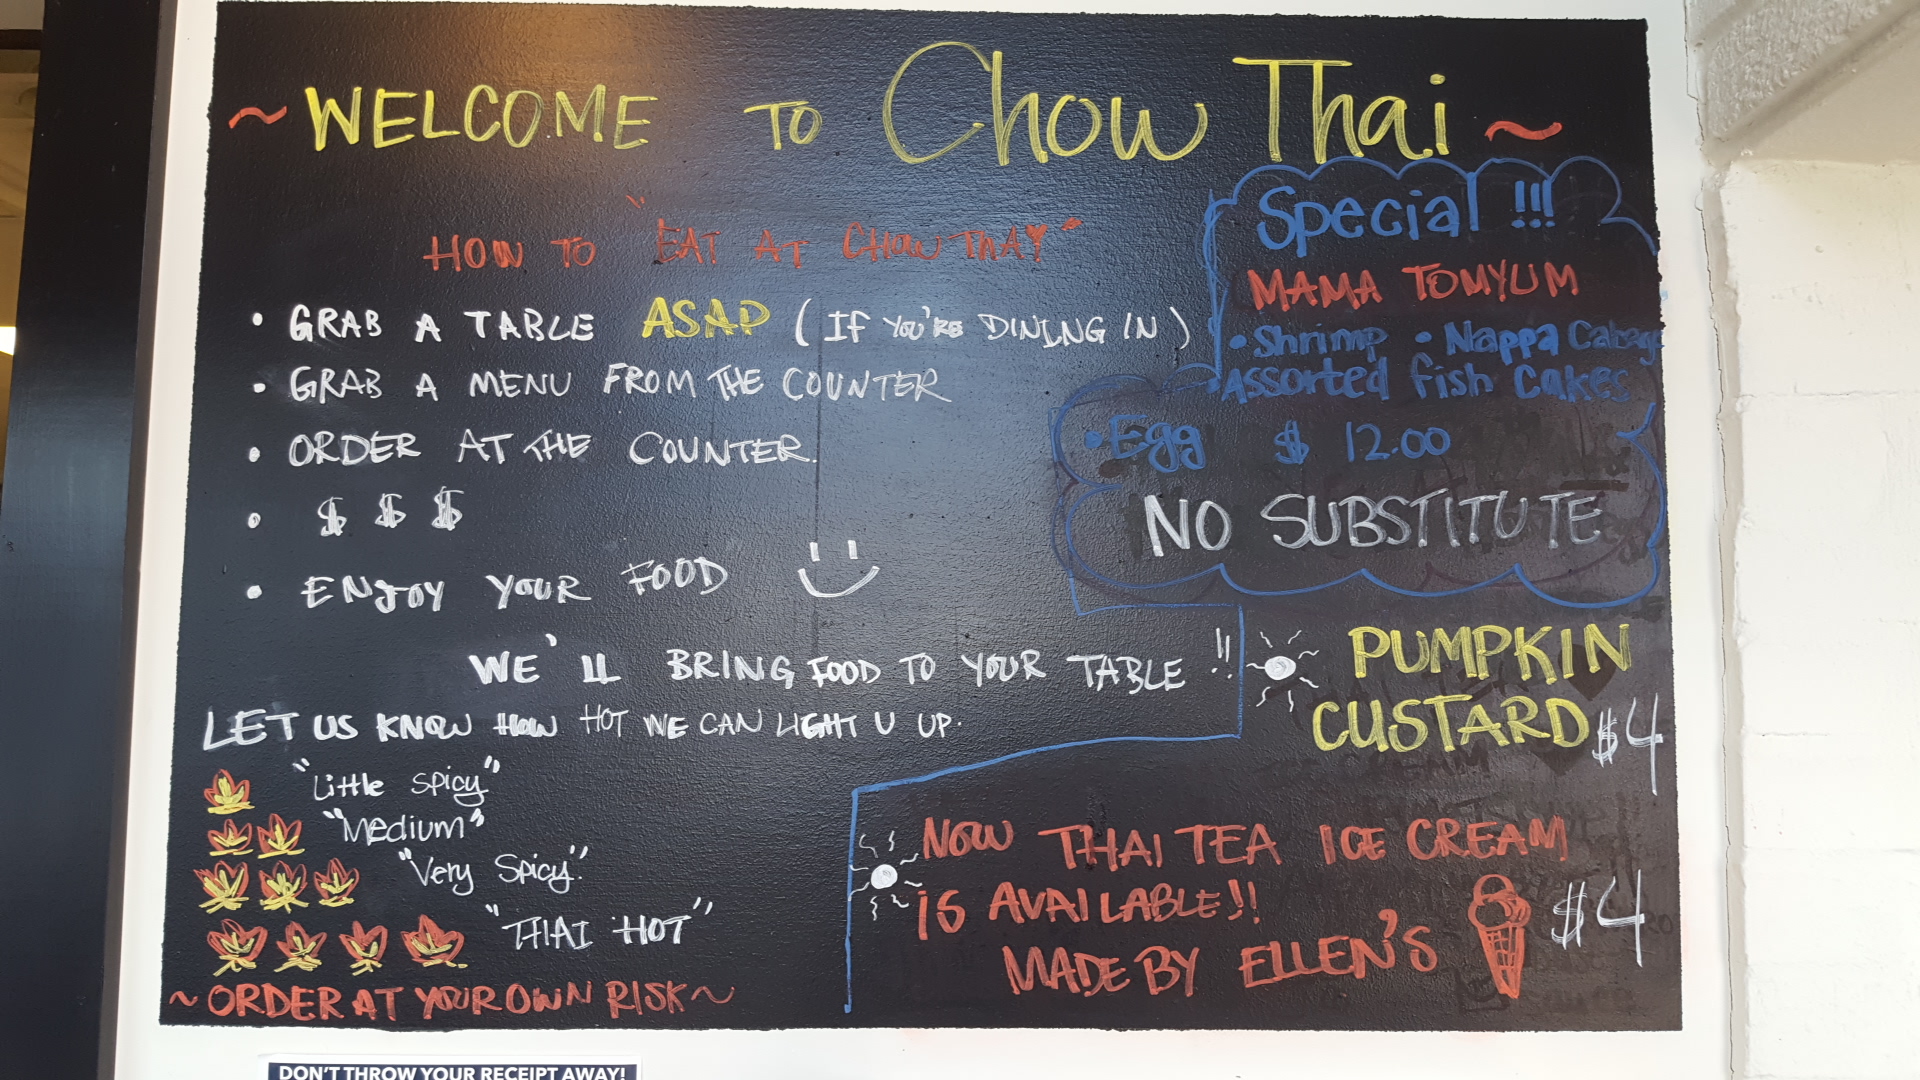 ~ WELCOME TO Chow Thai ~
HOW TO "EAT AT CHOW THAI"
• GRAB A TABLE ASAP (IF YOU'RE DINING IN)
• GRAB A MENU FROM THE COUNTER
• ORDER AT THE COUNTER.
• $ $ $
• ENJOY YOUR FOOD
WE'LL BRING FOOD TO YOUR TABLE !!
LET US KNOW HOW HOT WE CAN LIGHT U UP.
"Little Spicy"
"Medium"
"Very Spicy"
"THAI HOT"
~ ORDER AT YOUR OWN RISK ~
Special !!!
MAMA TOMYUM
• Shrimp • Nappa
Assorted fish Cakes
• Egg $ 12.00
NO SUBSTITUTE
PUMPKIN
CUSTARD $4
NOW THAI TEA ICE CREAM
IS AVAILABLE!!
MADE BY ELLEN'S $4
DON'T THROW YOUR RECEIPT AWAY!